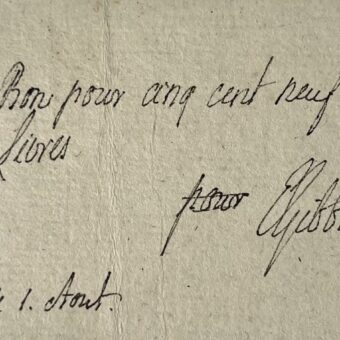 Bon pour cinq cent neuf
Livres
pour EGibb
1. Aout.